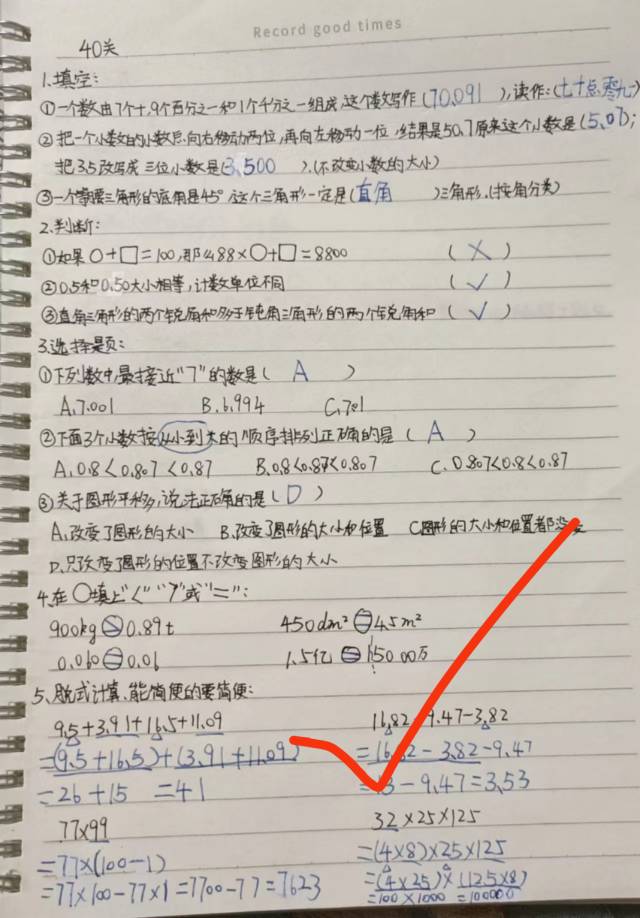 Record good times
40关
1.填空:
①一个数由7个十,9个百分之一和1个千分之一组成,这个数写作(70.091),读作:(七十点零九
②把一个小数的小数点向右移动两位,再向左移动一位,结果是50.7原来这个小数是(5.07);
把3.5改写成三位小数是(3.500).(不改变小数的大小)
③一个等腰三角形的底角是45°,这个三角形一定是(直角)三角形.(按角分类)
2.判断:
①如果○+□=100,那么88×○+□=8800 (×)
②0.5和0.50大小相等,计数单位不同 (√)
③直角三角形的两个锐角和大于钝角三角形的两个锐角和 (√)
3.选择题:
①下列数中,最接近"7"的数是( A )
A.7.001 B.6.994 C.7.01
②下面3个小数按从小到大的顺序排列正确的是( A )
A.0.8<0.807<0.87 B.0.8<0.87<0.807 C.0.807<0.8<0.87
③关于图形平移,说法正确的是( D )
A.改变了图形的大小 B.改变了图形的大小和位置 C.图形的大小和位置都没变
D.只改变了图形的位置不改变图形的大小
4.在○填上"<" ">"或"=":
900kg > 0.89t 450dm² = 4.5m²
0.060 = 0.06 1.5亿 = 15000万
5.脱式计算,能简便的要简便:
9.5+3.91+16.5+11.09 16.82-9.47-3.82
=(9.5+16.5)+(3.91+11.09) =16.82-3.82-9.47
=26+15 =41 =13-9.47=3.53
77×99 32×25×125
=77×(100-1) =(4×8)×25×125
=77×100-77×1=7700-77=7623 =(4×25)×(125×8)
=100×1000=100000